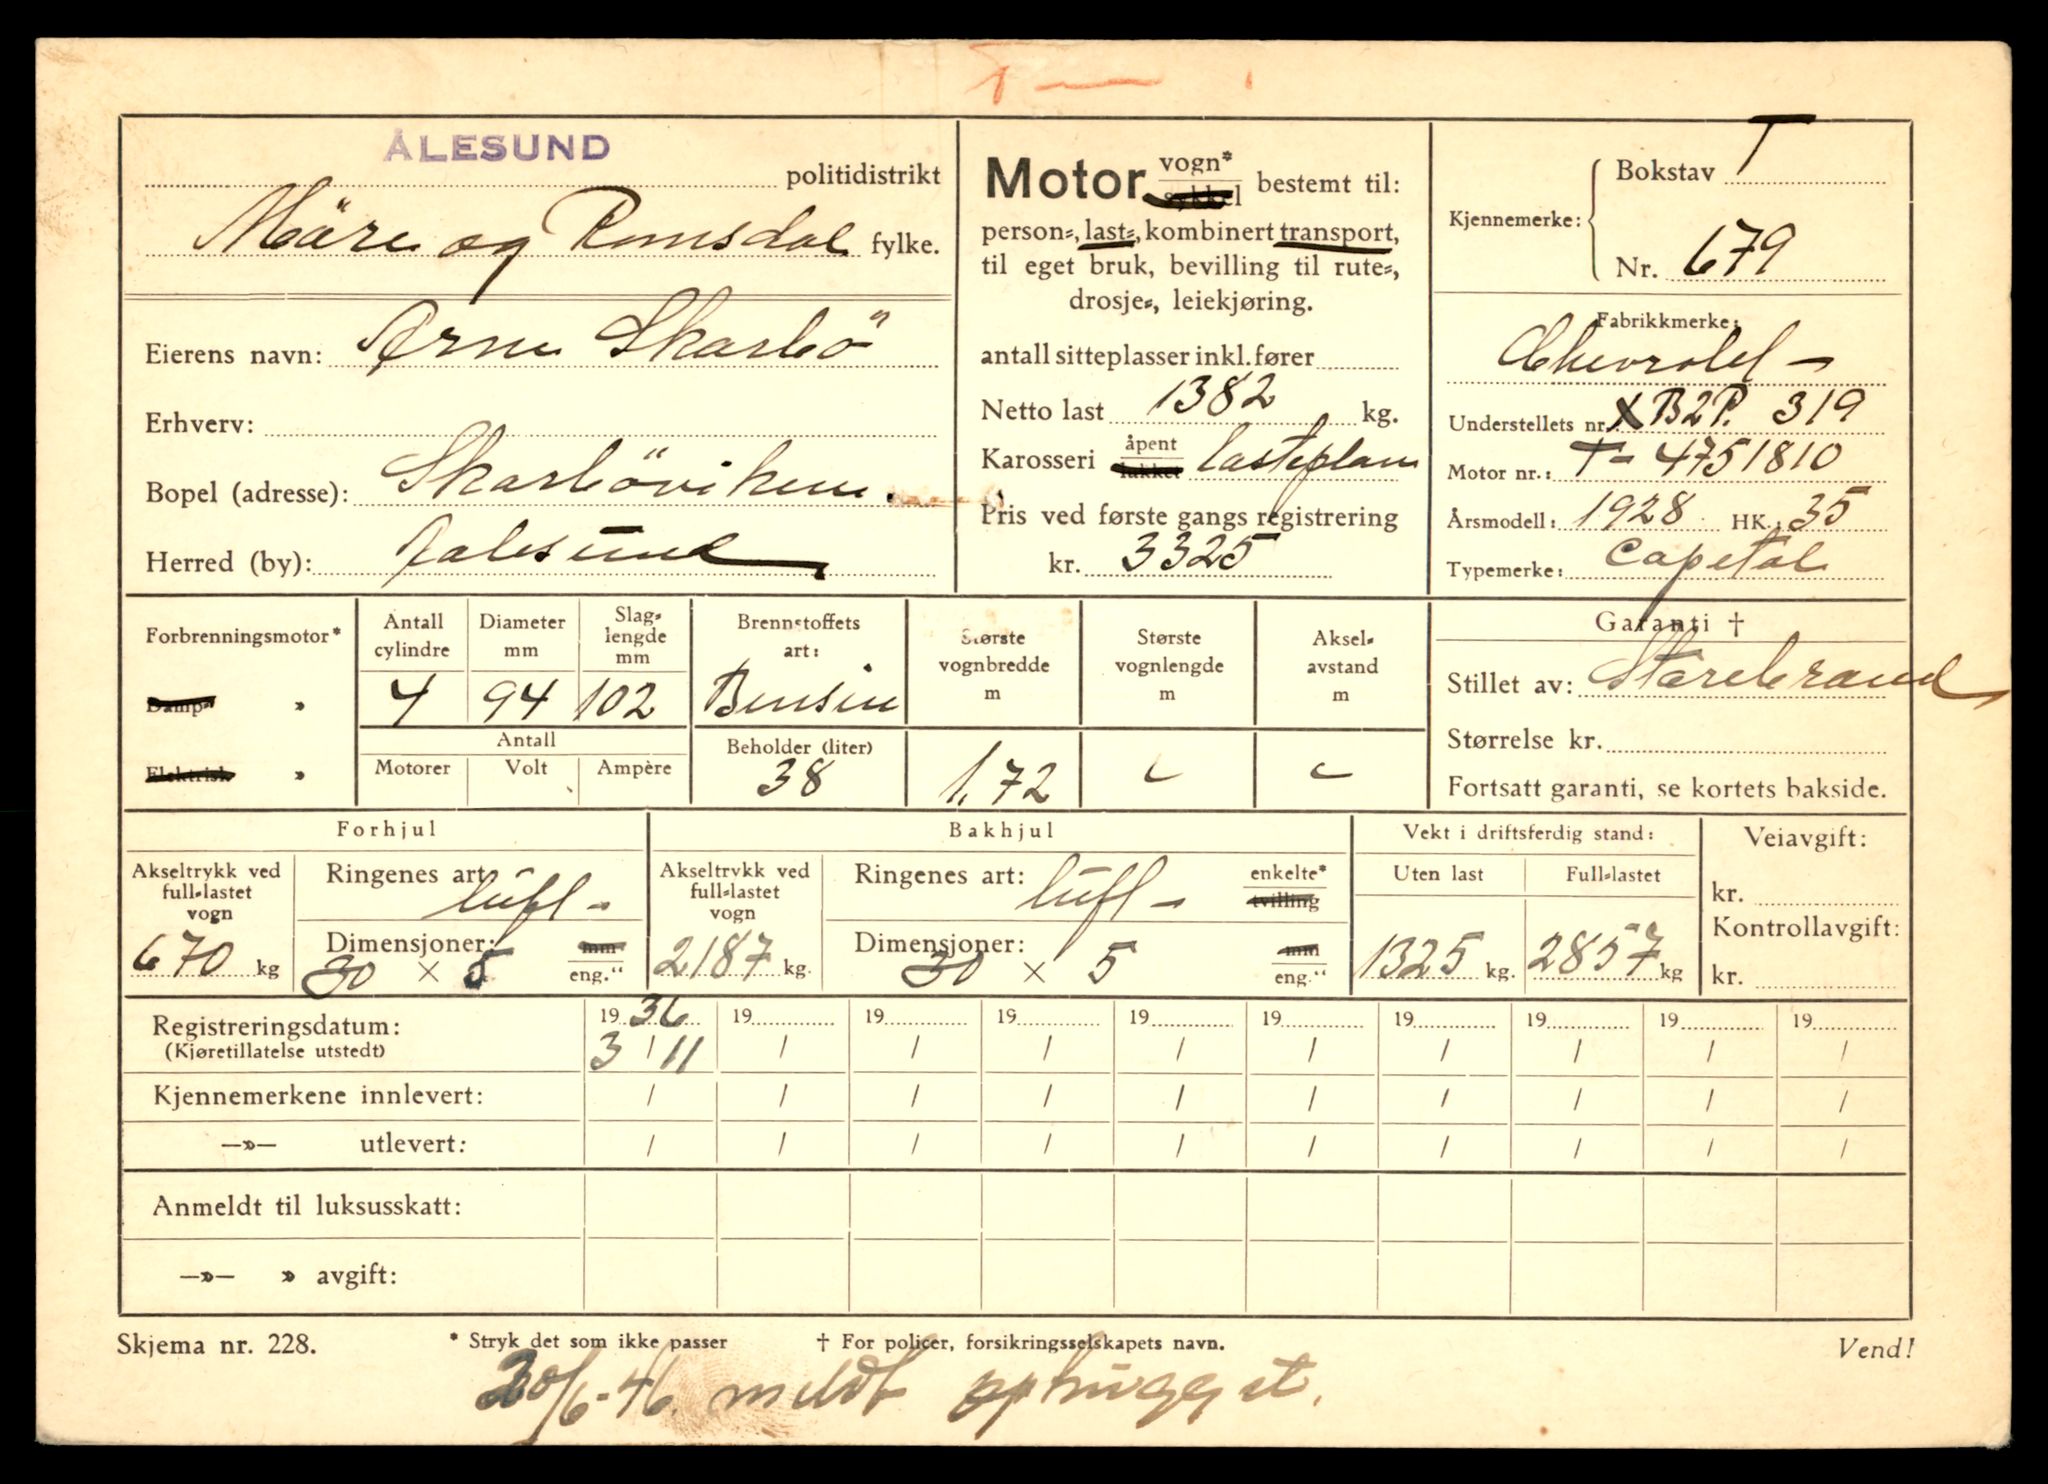 T —
ÅLESUND politidistrikt
Märe og Romsdal fylke.
Eierens navn: Arne Skarbö
Erhverv:
Bopel (adresse): Skarböviken.
Herred (by): Aalesund
Motor vogn* sykkel bestemt til:
person-, last-, kombinert transport,
til eget bruk, bevilling til rute-,
drosje-, leiekjøring.
antall sitteplasser inkl. fører
Netto last 1382 kg.
Karosseri åpent lukket lasteplan
Pris ved første gangs registrering
kr. 3325
Kjennemerke: Bokstav T
Nr. 679
Fabrikkmerke:
Chevrolet –
Understellets nr. XB2P. 319
Motor nr.: T- 4751810
Årsmodell: 1928 HK.: 35
Typemerke: Capetol
Forbrenningsmotor*
Damp- »
Elektrisk »
Antall cylindre 4
Diameter mm 94
Slag-lengde mm 102
Antall
Motorer Volt Ampère
Brennstoffets art: Bensin
Beholder (liter) 38
Største vognbredde m 1,72
Største vognlengde m
Aksel-avstand m
Garanti †
Stillet av: Storebrand
Størrelse kr.
Fortsatt garanti, se kortets bakside.
Forhjul
Akseltrykk ved full-lastet vogn 670 kg
Ringenes art: luft –
Dimensjoner: 30 × 5 mm eng."
Bakhjul
Akseltrykk ved full-lastet vogn 2187 kg.
Ringenes art: luft – enkelte* tvilling
Dimensjoner: 30 × 5 mm eng."
Vekt i driftsferdig stand:
Uten last Full-lastet
1325 kg. 2857 kg
Veiavgift:
kr.
Kontrollavgift:
kr.
Registreringsdatum: 19 36 19 19 19 19 19 19 19 19 19
(Kjøretillatelse utstedt) 3 / 11 / / / / / / / / /
Kjennemerkene innlevert: / / / / / / / / / /
—»— utlevert: / / / / / / / / / /
Anmeldt til luksusskatt:
—»— » avgift:
Skjema nr. 228. * Stryk det som ikke passer † For policer, forsikringsselskapets navn. Vend!
20/6-46. meldt ophugget.